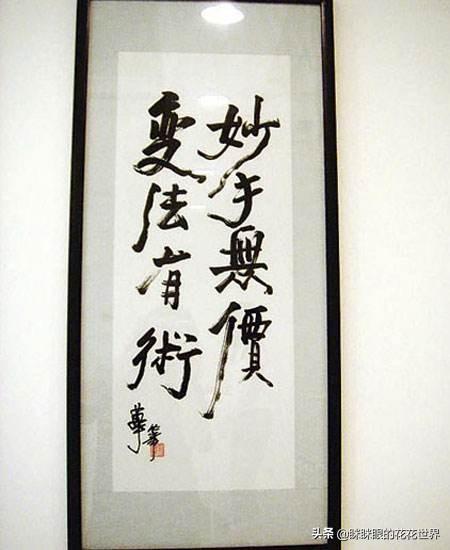 妙手無價
变法有術
头条 @眯眯眼的花花世界